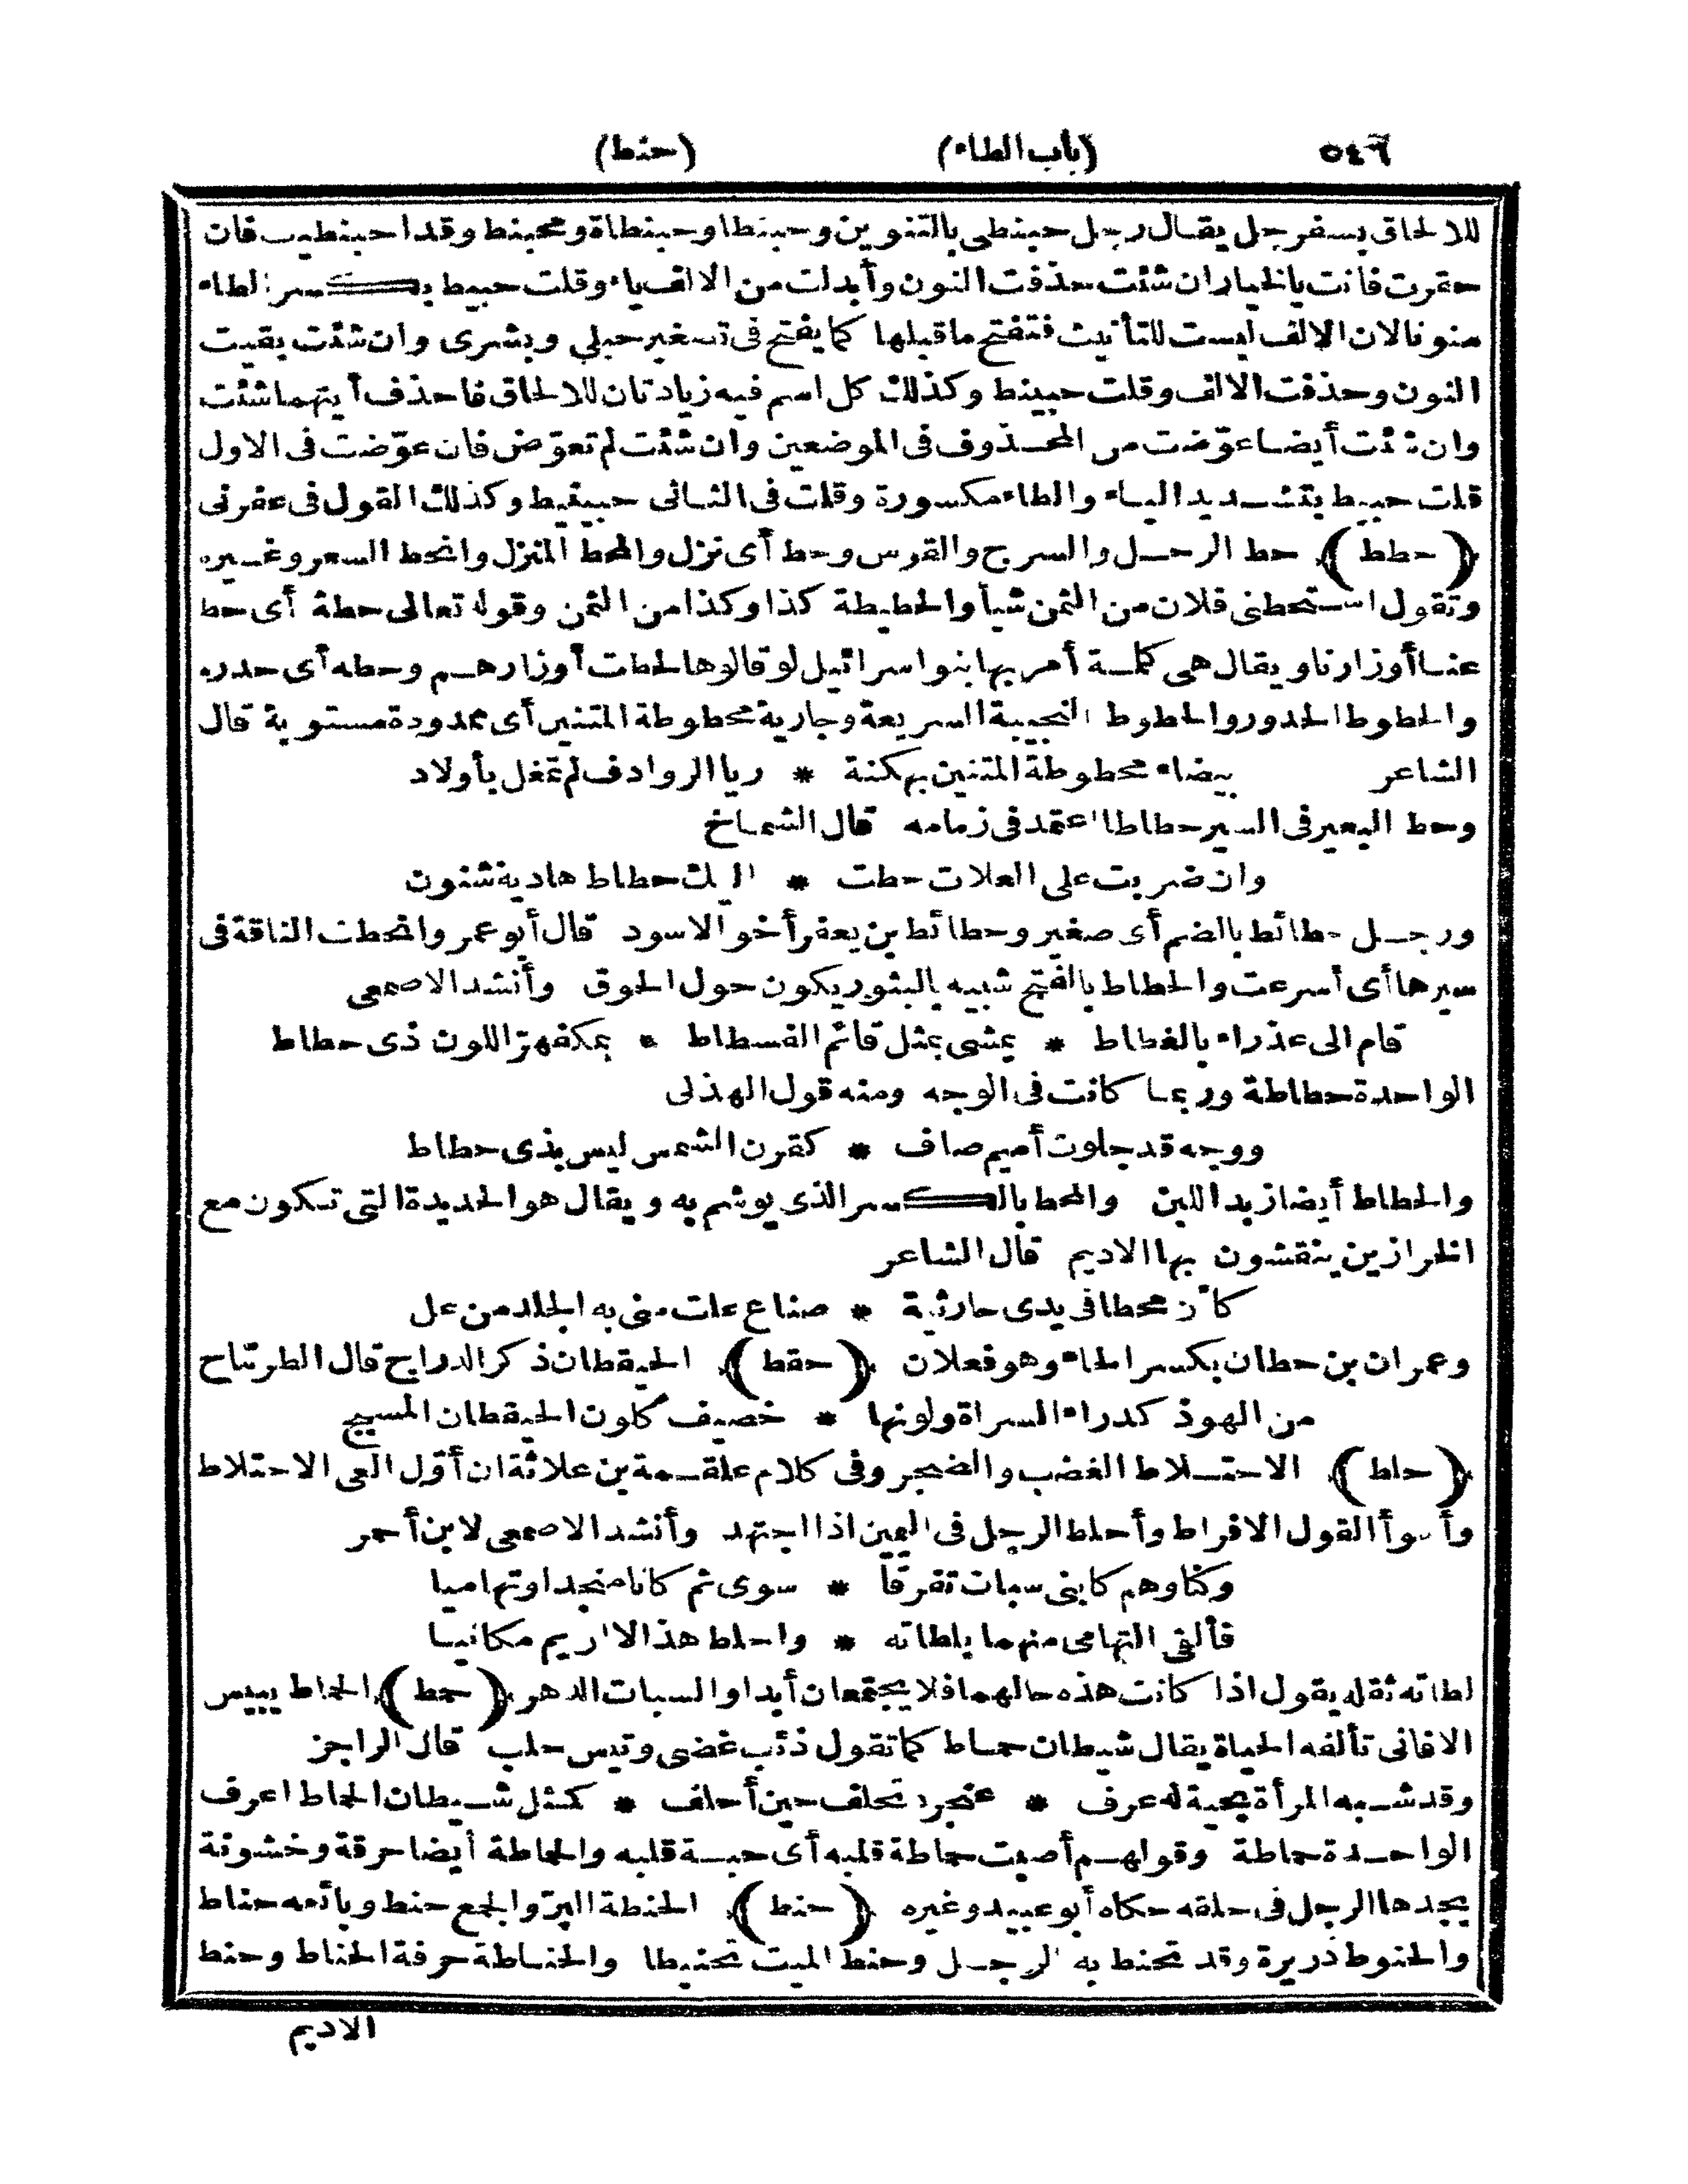 ٥٤٦ (باب الطاء) (حنط)
للالحاق بسفرجل يقال رجل حبنطى بالتنوين وحبنطا وحبنطاة ومحبنط وقد احبنطيت فان
حقرت فانت بالخيار ان شئت حذفت النون وأبدلت من الالف ياء وقلت حبيط بكسر الطاء
منونا لان الالف ليست للتأنيث فتفتح ما قبلها كما يفتح فى تصغير حبلى وبشرى وان شئت بقيت
النون وحذفت الالف وقلت حبينط وكذلك كل اسم فيه زيادتان للالحاق فاحذف أيتهما شئت
وان شئت أيضا عوّضت من المحذوف فى الموضعين وان شئت لم تعوّض فان عوّضت فى الاول
قلت حبيط بتشديد الياء والطاء مكسورة وقلت فى الثانى حبينيط وكذلك القول فى عفرنى
(حطط) حط الرحل والسرج والقوس وحط أى نزل والمحط المنزل وانحط السعر وغيره
وتقول استحطنى فلان من الثمن شيأ والحطيطة كذا وكذا من الثمن وقوله تعالى حطة أى حط
عنا أوزارنا ويقال هى كلمة أمر بها بنو اسرائيل لو قالوها لحطت أوزارهم وحطه أى حدره
والحطوط الحدور والحطوط النجيبة السريعة وجارية محطوطة المتنين أى ممدودة مستوية قال
الشاعر بيضاء محطوطة المتنين بهكنة * ريا الروادف لم تمغل بأولاد
وحط البعير فى السير حطاطا اعتمد فى زمامه قال الشماخ
وان ضربت على العلات حطت * اليك حطاط هادية شنون
ورجل حطائط بالضم أى صغير وحطائط بن يعفر أخو الاسود قال أبو عمر وانحطت الناقة فى
سيرها أى أسرعت والحطاط بالفتح شبيه بالبثور يكون حول الحوق وأنشد الاصمعى
قام الى عذراء بالغطاط * يمشى بمثل قائم الفسطاط * بمكفهرّ اللون ذى حطاط
الواحدة حطاطة وربما كانت فى الوجه ومنه قول الهذلى
ووجه قد جلوت أميم صاف * كقرن الشمس ليس بذى حطاط
والحطاط أيضا زبد اللبن والمحط بالكسر الذى يوشم به ويقال هو الحديدة التى تكون مع
الخرازين ينقشون بها الاديم قال الشاعر
كأن محطا فى يدى حارثية * صناع علت منى به الجلد من عل
وعمران بن حطان بكسر الحاء وهو فعلان (حقط) الحيقطان ذكر الدراج قال الطرمّاح
من الهوذ كدراء السراة ولونها * خصيف كلون الحيقطان المسيح
(حلط) الاحتلاط الغضب والضجر وفى كلام علقمة بن علاثة ان أوّل العى الاحتلاط
وأسوأ القول الافراط وأحلط الرجل فى اليمين اذا اجتهد وأنشد الاصمعى لابن أحمر
وكنّا وهم كابنى سبات تفرقا * سوى ثم كانا منجدا وتهاميا
فألقى التهامى منهما بلطاته * واحلط هذا لا اريم مكانيا
لطاته ثقله يقول اذا كانت هذه حالهما فلا يجتمعان أبدا والسبات الدهر (حمط) الحماط يبيس
الافانى تألفه الحياة يقال شيطان حماط كما تقول ذئب غضى وتيس حلب قال الراجز
وقد شبه المرأة بحية له عرف * عنجرد تحلف حين أحلف * كمثل شيطان الحماط اعرف
الواحدة حماطة وقولهم أصبت حماطة قلبه أى حبة قلبه والحماطة أيضا حرقة وخشونة
يجدها الرجل فى حلقه حكاه أبو عبيد وغيره (حنط) الحنطة البرّ والجمع حنط وبائعه حناط
والحنوط ذريرة وقد تحنط به الرجل وحنط الميت تحنيطا والحناطة حرفة الحناط وحنط
الاديم